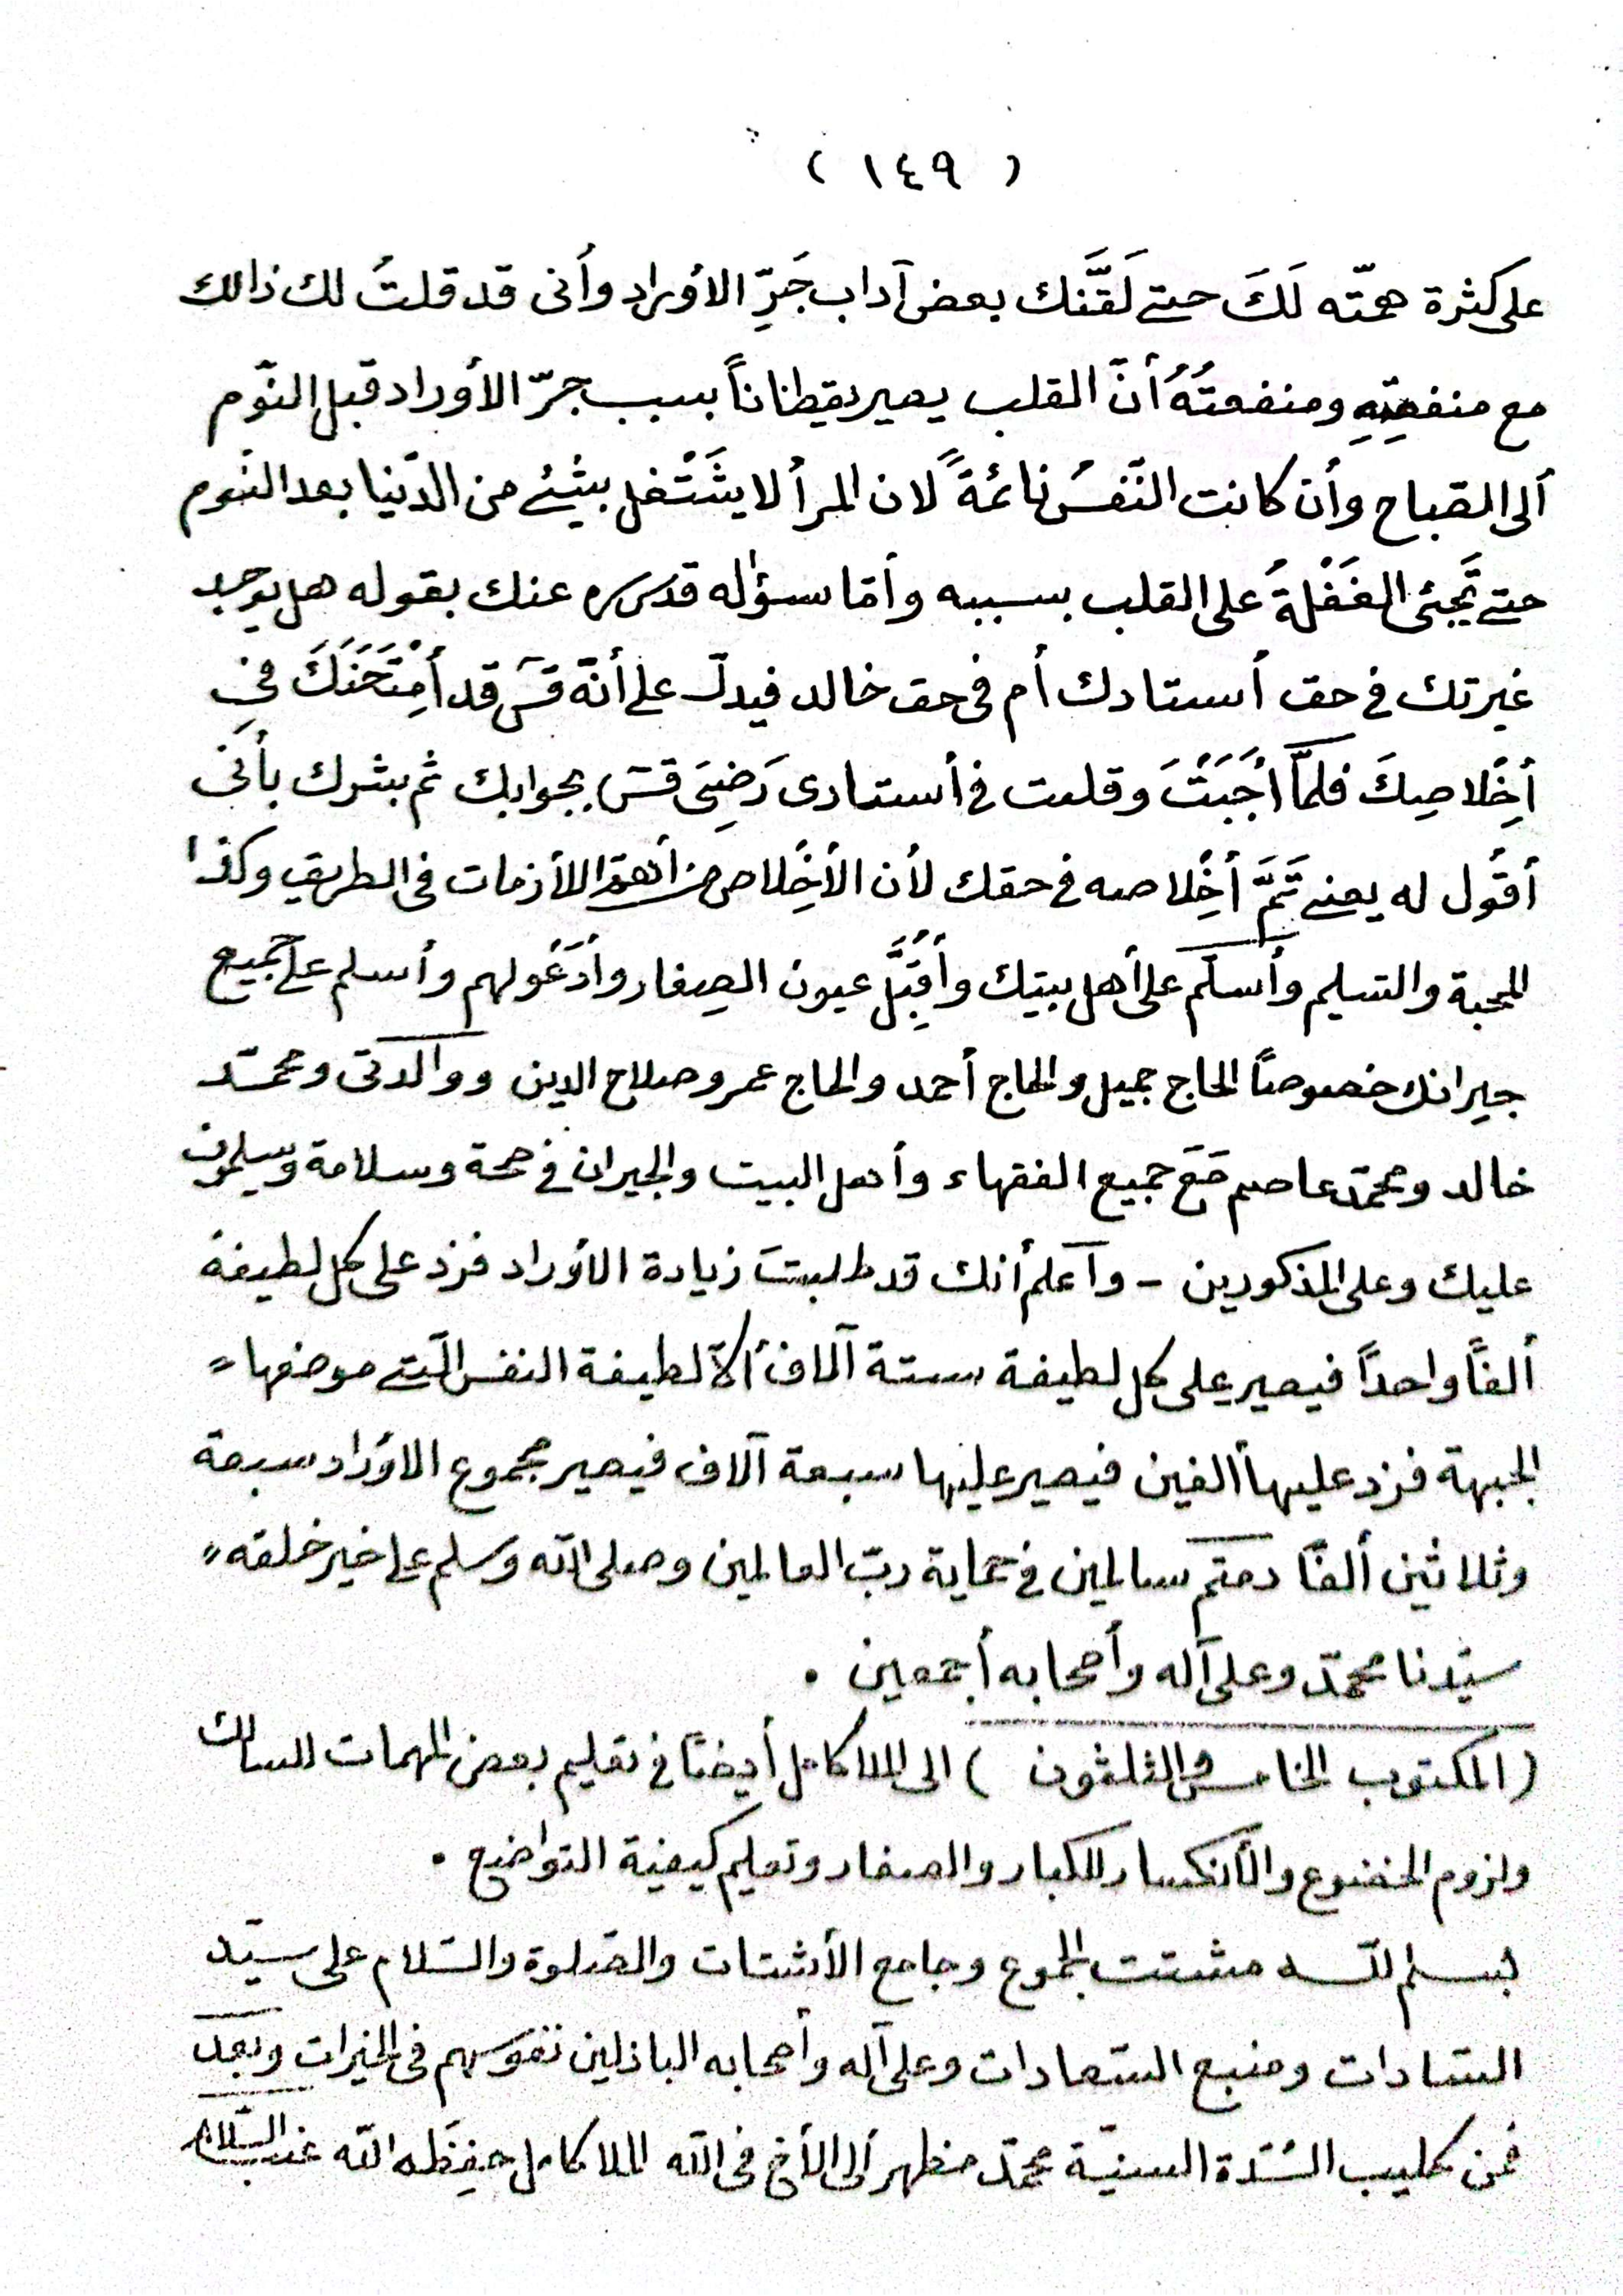 ( ١٤٩ )
على كثرة همّته لَكَ حتى لَقَّنَك بعض آداب جَرِّ الأوراد وأنى قد قلتُ لك ذالك
مع منفعتِهِ ومنفعتُهُ أنّ القلب يصير يقظاناً بسبب جرّ الأوراد قبل النّوم
ألى الصّباح وأن كانت النّفسُ نائمةً لان المرأ لا يشَتْغل بشئ من الدّنيا بعد النّوم
حتى تَجئى الغَفْلةُ على القلب بسببه وأمّا سؤاله قدس سره عنك بقوله هل يوجد
غيرتك فى حق أستادك أم فى حق خالد فيدلّ على أنّه قسَ قد أمِْتَحَنَكَ فى
أخِْلاصِكَ فلمّا أجَبَْتَ وقلت فى أستادى رَضِىَ قسَ بجوابك ثم بشرك بأنى
أقُول له يعنى تَمَّ أخِْلاصه فى حقك لأن الأخِْلاص من أهمّ اللأزمات فى الطريق وكذا
المحبة والتسليم وأسلّم على أهل بيتك وأقَبِّل عيون الصِغار وأدَْعُولهم وأسلم على جميع
جيِرانك خصوصاً الحاج جميل والحاج أحمد والحاج عمر وصلاح الدين ووالدتى ومحمّد
خالد ومحمّد عاصم مَعَ جميع الفقهاء وأهل البيت والجيران فى صحة وسلامة ويسلمون
عليك وعلى المذكورين - وآعلم أنك قد طلبتَ زيادة الأوراد فزد على كل لطيفة
ألفاً واحداً فيصير على كل لطيفة ستة آلاف ألاّ لطيفة النفس الّتى موضعها "
الجبهة فزد عليها ألفين فيصير عليها سبعة آلاف فيصير مجموع الأوراد سبعة
وثلاثين ألفاً دمتم سالمين فى حماية ربّ العالمين وصلى الله وسلم على خير خلقه "
سيّدنا محمّد وعلى آله وأصحابه أجمعين .
( المكتوب الخامس والثلثون ) الى الملا كامل أيضاً فى تعليم بعض المهمات للسالك
ولزوم الخضوع والأنكسار للكبار والصغار وتعليم كيفية التواضع .
بسم اللّه مشتت الجموع وجامع الأشتات والصّلوة والسّلام على سيّد
السّادات ومنبع السّعادات وعلى آله وأصحابه الباذلين نفوسهم فى الخيرات وبعد
فمن كليب السُّدّة السنيّة محمّد مظهر ألى الأخ فى الله الملا كامل حفِظَه الله